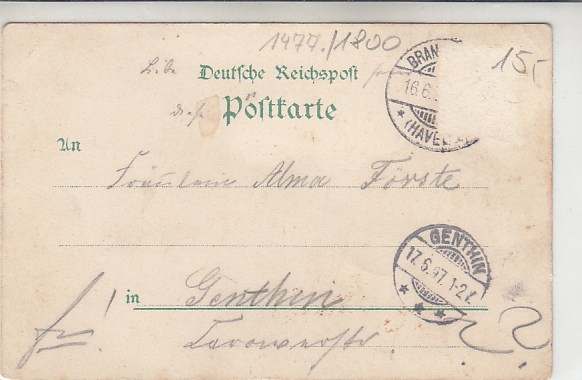 1477./1800
15,-
Deutsche Reichspost
Postkarte
BRAN
16.6.
(HAVEL
An
Fräulein Alma Förste
GENTHIN
17.6.97.1-2N.
in Genthin